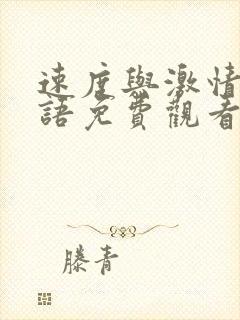 速度與激情
語免費觀看
滕青